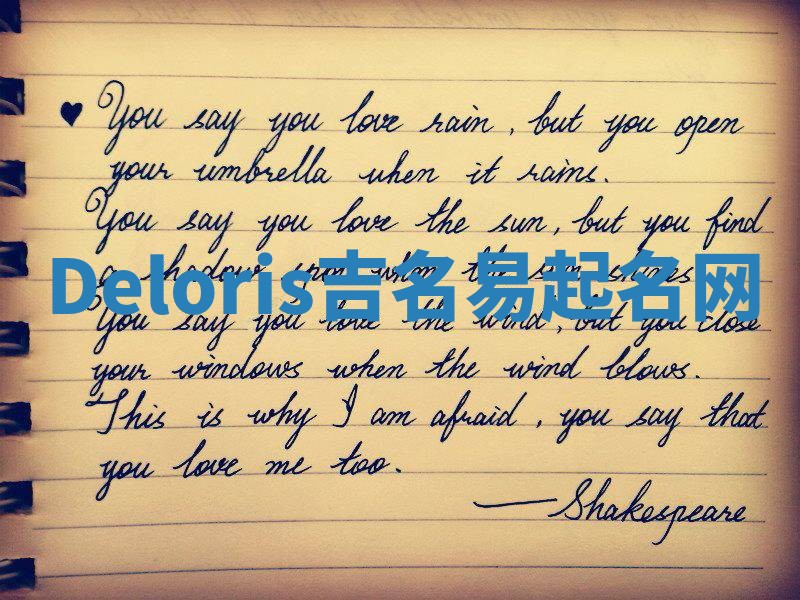 ♥ You say you love rain, but you open
your umbrella when it rains.
You say you love the sun, but you find
a shadow spot when the sun shines
Deloris吉名易起名网
You say you love the wind, but you close
your windows when the wind blows.
This is why I am afraid, you say that
you love me too.
— Shakespeare